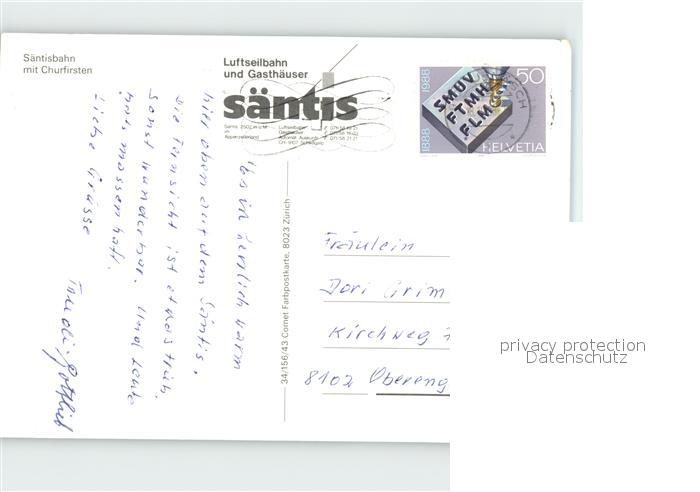 Säntisbahn
mit Churfirsten
Luftseilbahn
und Gasthäuser
säntis
Säntis 2502 m ü.M.
im
Appenzellerland
Luftseilbahn
Gasthäuser
CH-9107 Schwägalp
1888 1988
50
SMUV
FTMH
FLM
HELVETIA
ziemlich warm
hier oben auf dem Säntis.
Die Fernsicht ist etwas trüb.
Sonst wunderbar. Und Leute
massenhaft.
Liebe Grüsse
Trudi, Gottlieb
34/156/43 Comet Farbpostkarte, 8023 Zürich
Fräulein
Dori Grim
Kirchweg
8102 Obereng
privacy protection
Datenschutz